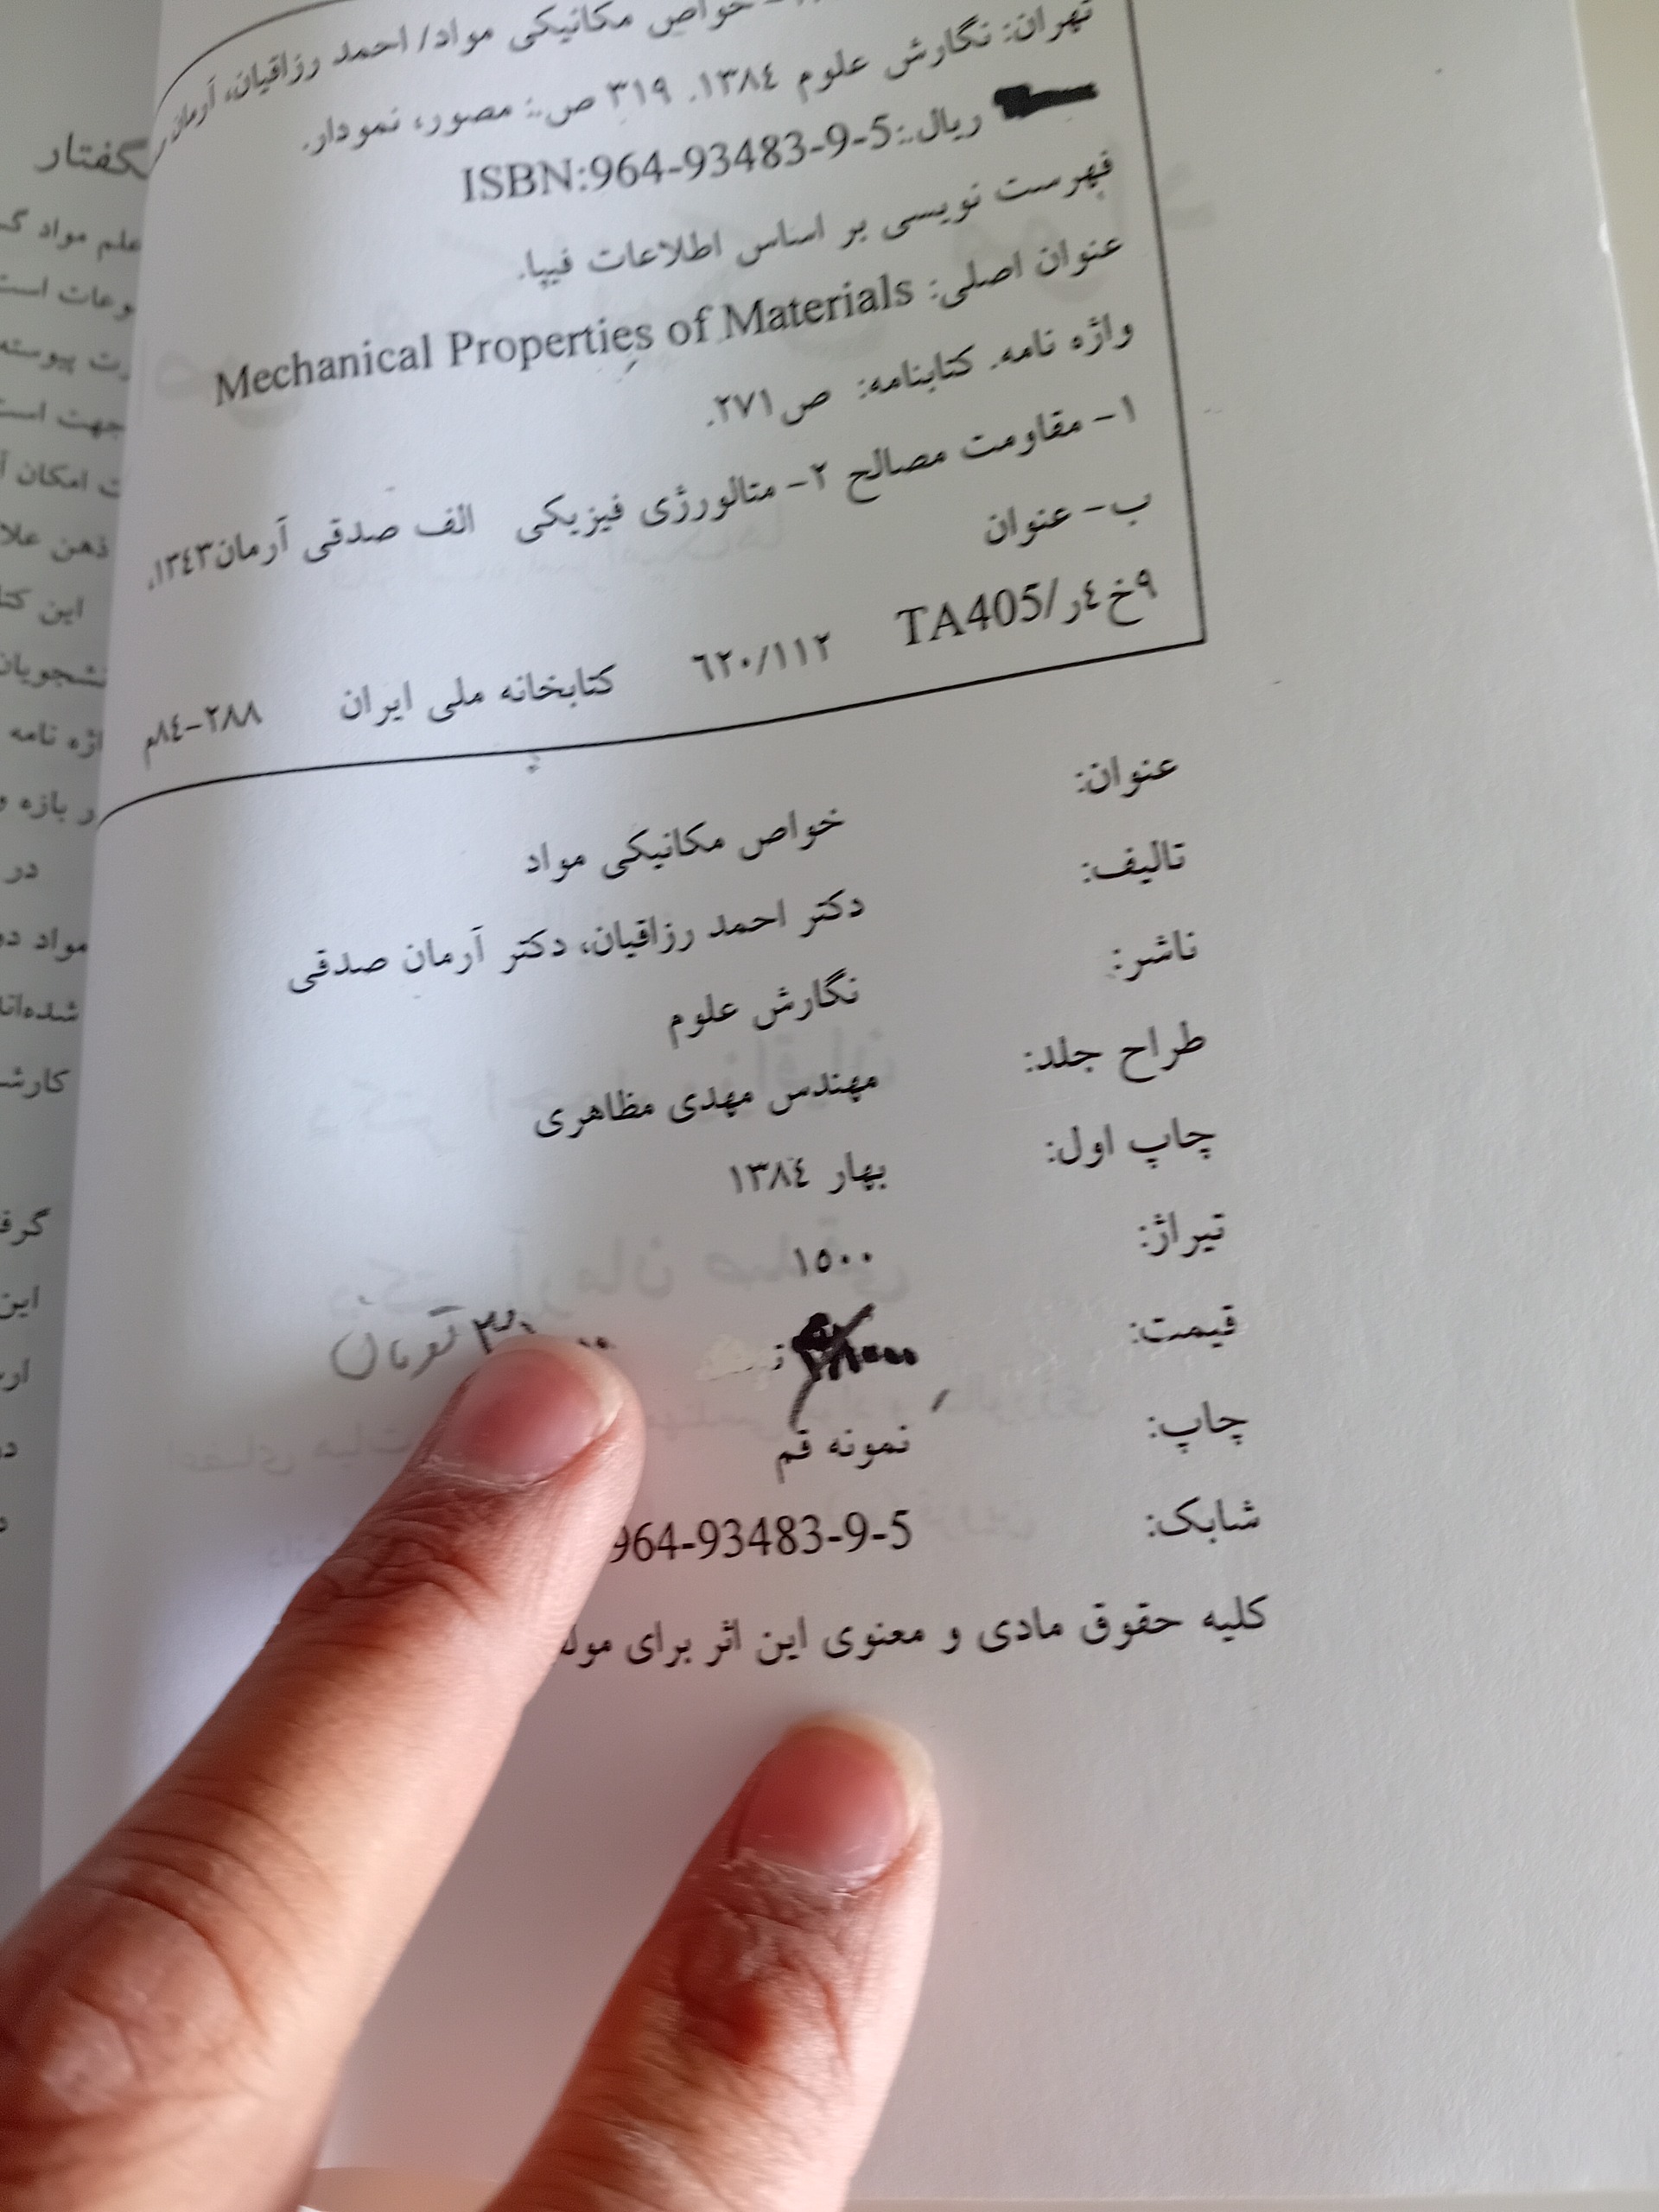 خواص مکانیکی مواد/ احمد رزاقیان، آرمان
تهران: نگارش علوم ١٣٨٤. ٣١٩ ص.: مصور، نمودار.
ریال.: ISBN:964-93483-9-5
فهرست نویسی بر اساس اطلاعات فیپا.
عنوان اصلی: Mechanical Properties of Materials
واژه نامه. کتابنامه: ص٢٧١.
١- مقاومت مصالح ٢- متالورژی فیزیکی الف صدقی آرمان١٣٤٣.
ب- عنوان
٩خ٤ر/TA405 ٦٢٠/١١٢ کتابخانه ملی ایران ٢٨٨-٨٤م
عنوان: خواص مکانیکی مواد
تالیف: دکتر احمد رزاقیان، دکتر آرمان صدقی
ناشر: نگارش علوم
طراح جلد: مهندس مهدی مظاهری
چاپ اول: بهار ١٣٨٤
تیراژ: ١٥٠٠
قیمت: تومان
چاپ: نمونه قم
شابک: 964-93483-9-5
کلیه حقوق مادی و معنوی این اثر برای
گفتار
علم مواد
است
پیوسته
جهت است
امکان
ذهن
این
نامه
بازه
در
مواد
این